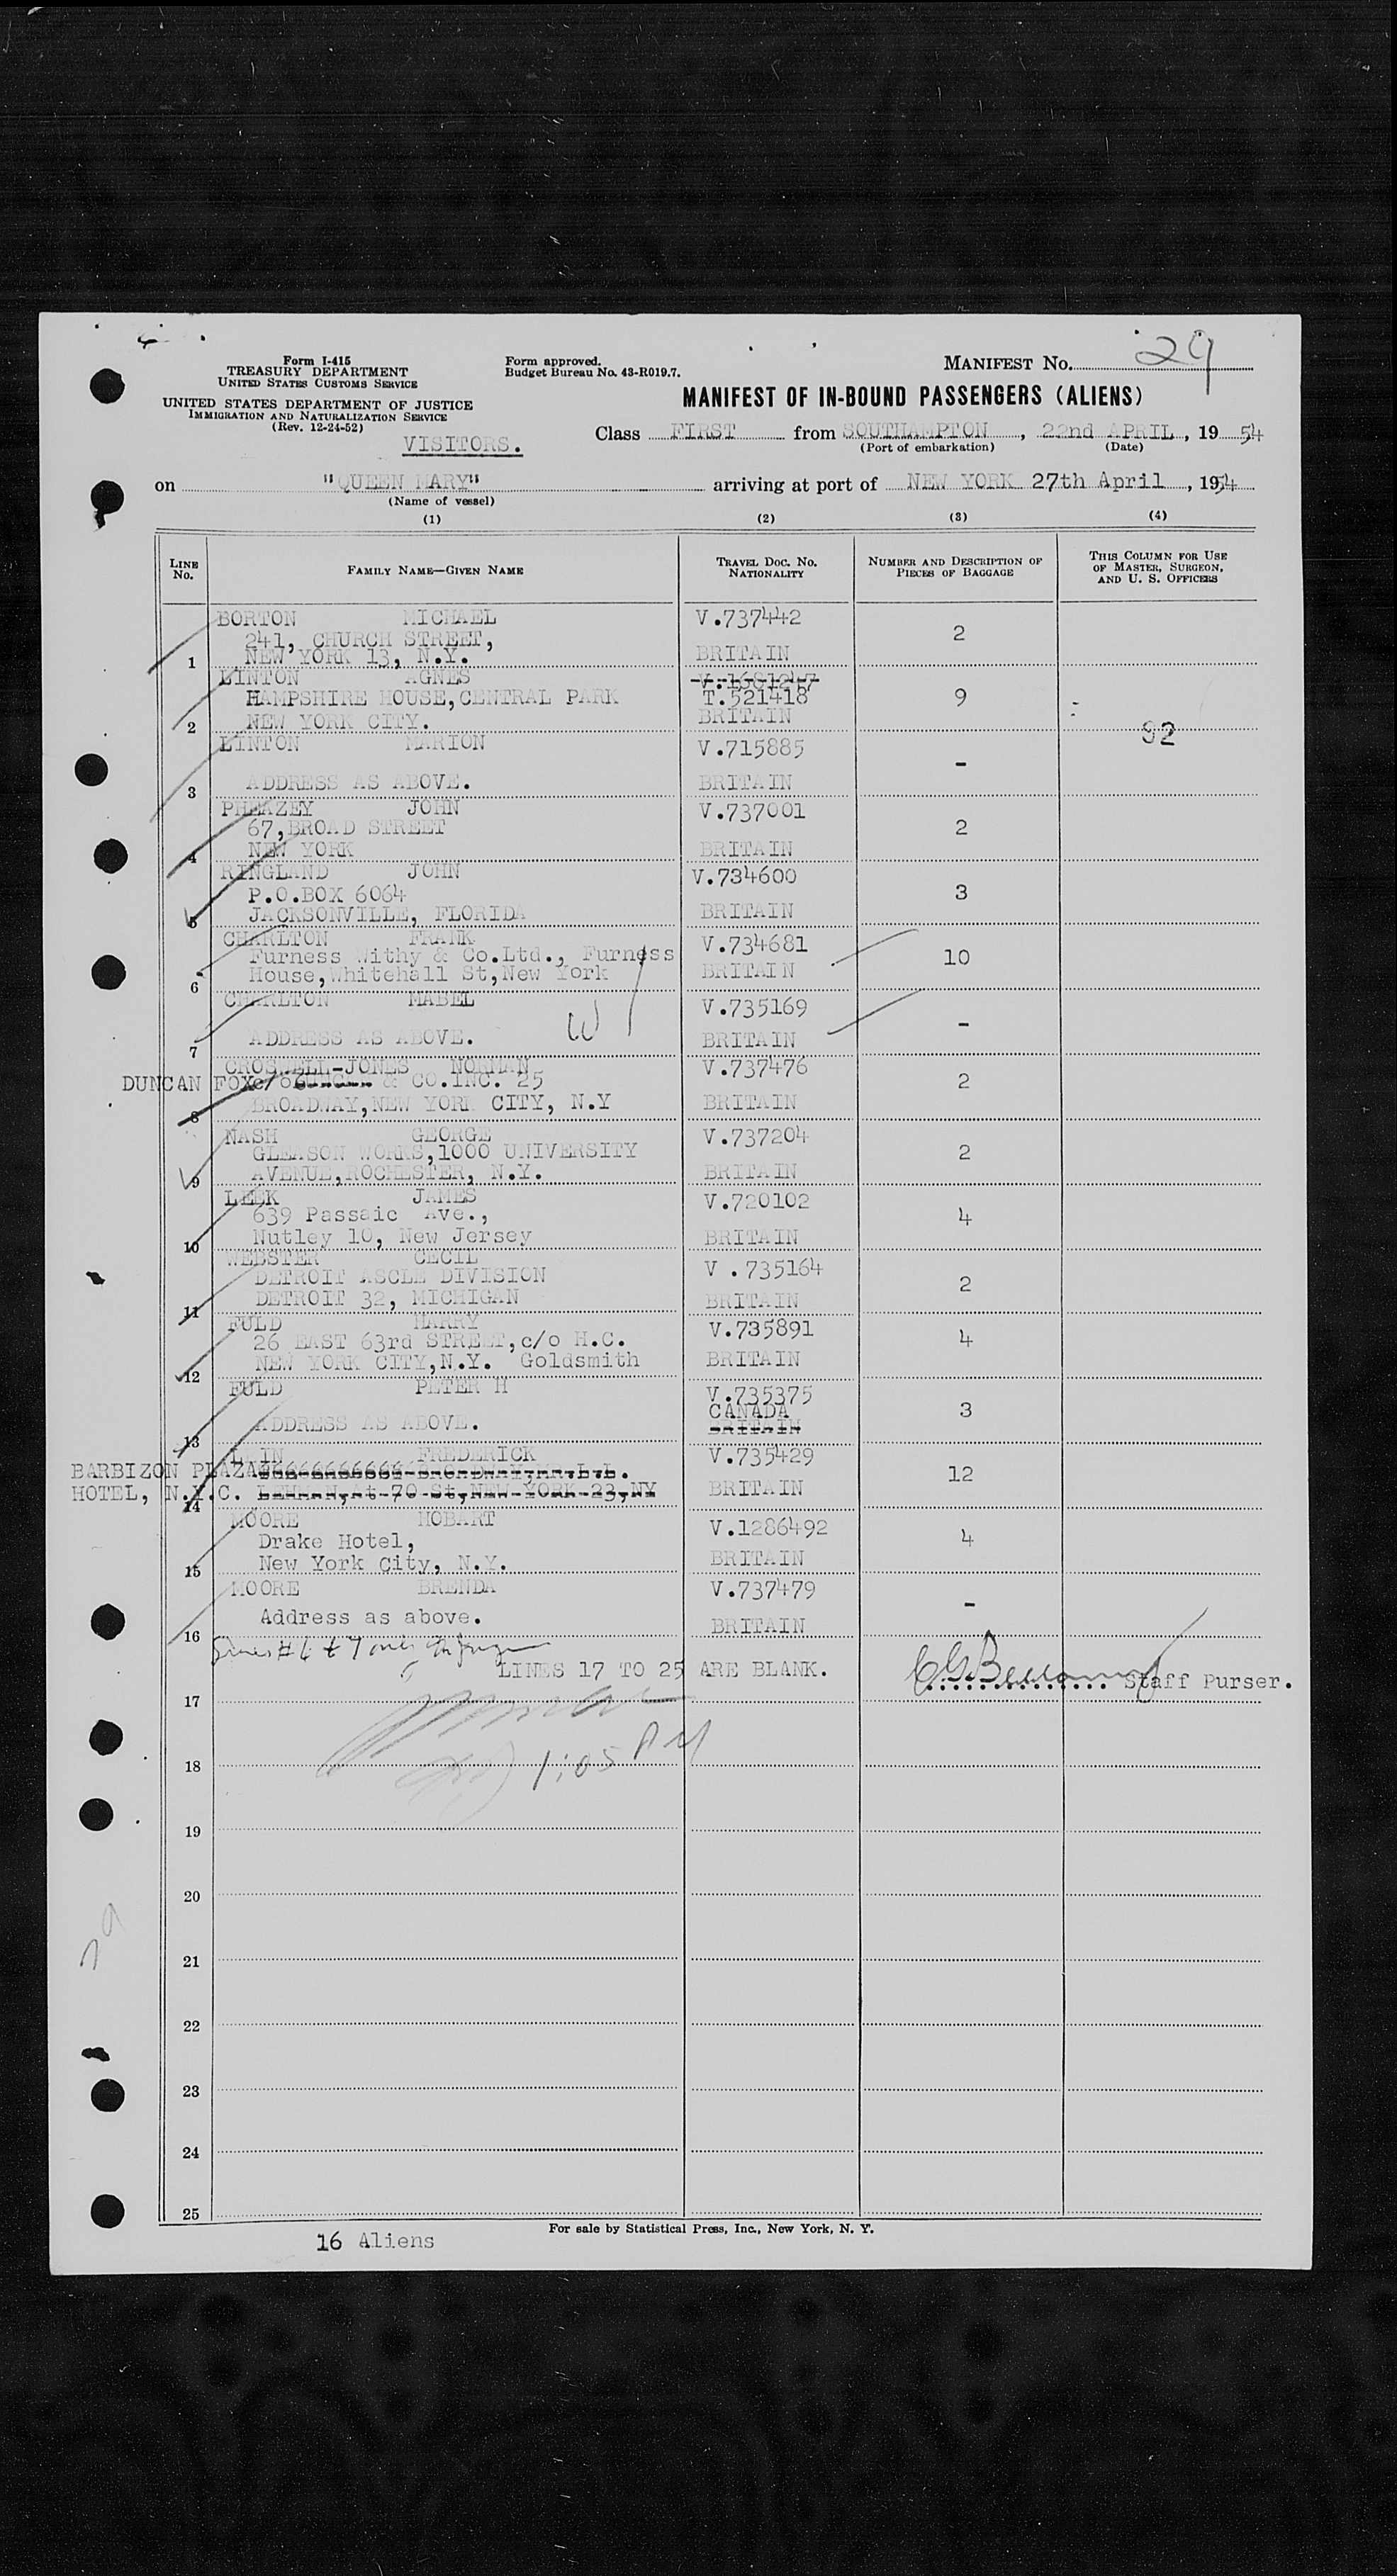 Form I-415
TREASURY DEPARTMENT
UNITED STATES CUSTOMS SERVICE
UNITED STATES DEPARTMENT OF JUSTICE
IMMIGRATION AND NATURALIZATION SERVICE
(Rev. 12-24-52)
VISITORS.
Form approved.
Budget Bureau No. 43-R019.7.
MANIFEST No. 29
MANIFEST OF IN-BOUND PASSENGERS (ALIENS)
Class FIRST from SOUTHAMPTON, 22nd APRIL, 1954
(Port of embarkation) (Date)
on "QUEEN MARY" arriving at port of NEW YORK 27th April, 1954
(Name of vessel)
(1) (2) (3) (4)
LINE No. FAMILY NAME—GIVEN NAME TRAVEL DOC. NO. NATIONALITY NUMBER AND DESCRIPTION OF PIECES OF BAGGAGE THIS COLUMN FOR USE OF MASTER, SURGEON, AND U. S. OFFICERS
BORTON MICHAEL V.737442
241, CHURCH STREET, 2
1 NEW YORK 13, N.Y. BRITAIN
LINTON AGNES V.1681247
HAMPSHIRE HOUSE,CENTRAL PARK T.521418 9
2 NEW YORK CITY. BRITAIN
92
LINTON MARION V.715885
-
3 ADDRESS AS ABOVE. BRITAIN
PHEAZEY JOHN V.737001
67,BROAD STREET 2
4 NEW YORK BRITAIN
RINGLAND JOHN V.734600
P.O.BOX 6064 3
5 JACKSONVILLE, FLORIDA BRITAIN
CHARLTON FRANK V.734681
Furness Withy & Co.Ltd., Furness 10
6 House,Whitehall St,New York BRITAIN
CHARLTON MABEL V.735169
-
7 ADDRESS AS ABOVE. BRITAIN
W
CROSWELL-JONES NORMAN V.737476
DUNCAN FOX c/o & CO.INC. 25 2
8 BROADWAY,NEW YORK CITY, N.Y BRITAIN
NASH GEORGE V.737204
GLEASON WORKS,1000 UNIVERSITY 2
9 AVENUE,ROCHESTER, N.Y. BRITAIN
LEEK JAMES V.720102
639 Passaic Ave., 4
10 Nutley 10, New Jersey BRITAIN
WEBSTER CECIL V . 735164
DETROIT ASCLE DIVISION 2
11 DETROIT 32, MICHIGAN BRITAIN
FULD HARRY V.735891
26 EAST 63rd STREET,c/o H.C. 4
12 NEW YORK CITY,N.Y. Goldsmith BRITAIN
FULD PETER H V.735375
CANADA 3
13 ADDRESS AS ABOVE. BRITAIN
FREDERICK V.735429
BARBIZON PLAZA 12
14 HOTEL, N.Y.C. LEHMAN,At-70-St,NEW-YORK-23,NY BRITAIN
MOORE HOBART V.1286492
Drake Hotel, 4
15 New York City, N.Y. BRITAIN
MOORE BRENDA V.737479
Address as above. -
16 BRITAIN
LINES 17 TO 25 ARE BLANK. Staff Purser.
17
1:05 PM
18
19
20
29
21
22
23
24
25
For sale by Statistical Press, Inc., New York, N. Y.
16 Aliens